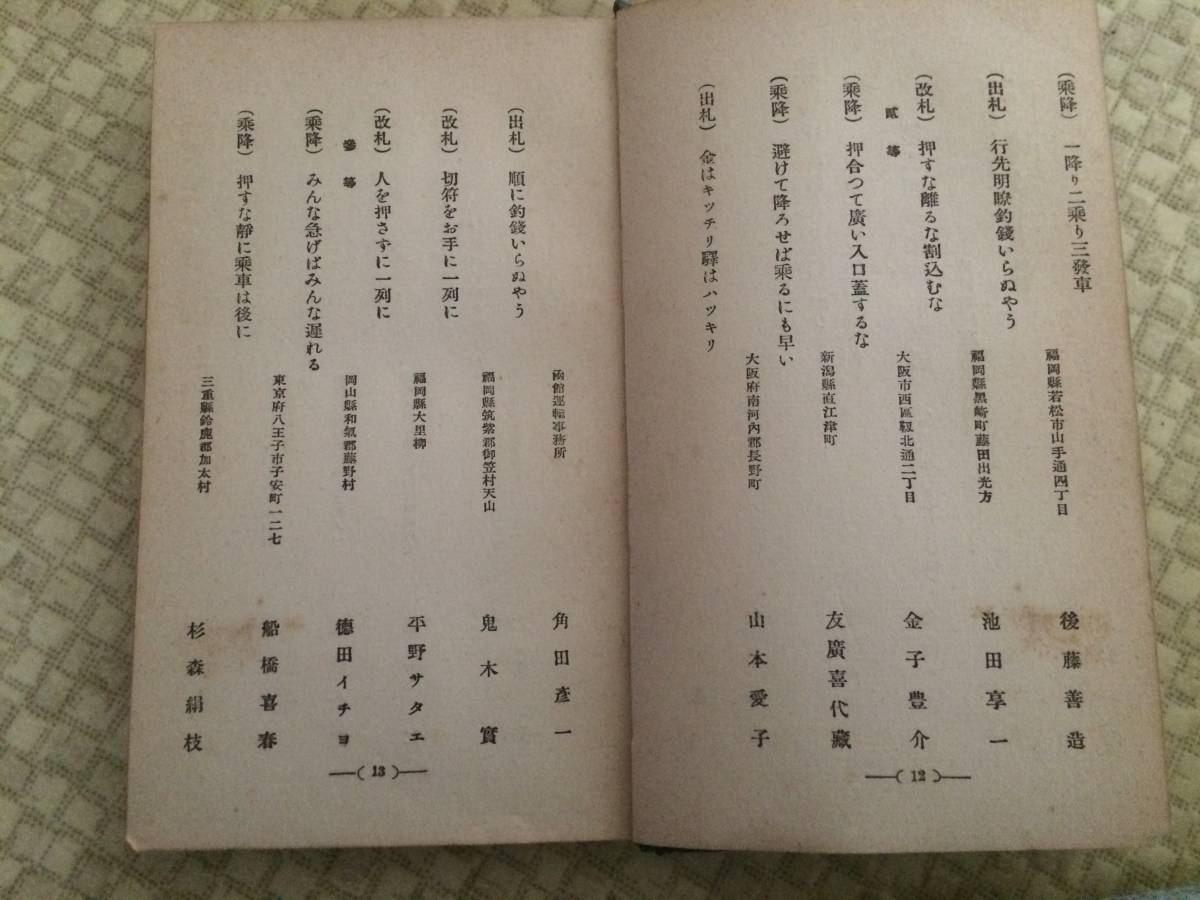 (乘降) 一降り二乘り三發車
福岡縣若松市山手通四丁目
後藤善造
(出札) 行先明瞭釣錢いらぬやう
福岡縣黑崎町藤田出光方
池田享一
(改札) 押すな離るな割込むな
大阪市西區靱北通二丁目
金子豊介
貳等
(乘降) 押合つて廣い入口蓋するな
新潟縣直江津町
友廣喜代藏
(乘降) 避けて降ろせば乘るにも早い
大阪府南河內郡長野町
山本愛子
(出札) 金はキッチリ驛はハツキリ
— ( 12 ) —
函館運輸事務所
角田彥一
(出札) 順に釣錢いらぬやう
福岡縣筑紫郡御笠村天山
鬼木實
(改札) 切符をお手に一列に
福岡縣大里柳
平野サタエ
(改札) 人を押さずに一列に
岡山縣和氣郡藤野村
德田イチヨ
參等
(乘降) みんな急げばみんな遲れる
東京府八王子市子安町一二七
船橋喜春
(乘降) 押すな靜に乘車は後に
三重縣鈴鹿郡加太村
杉森絹枝
— ( 13 ) —